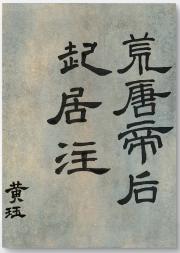 荒唐帝后
起居注
黄珏